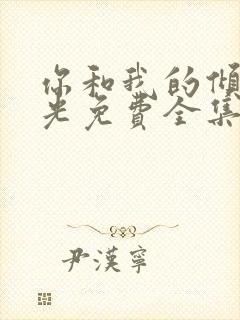 你和我的倾
光免费全集
尹漢寧